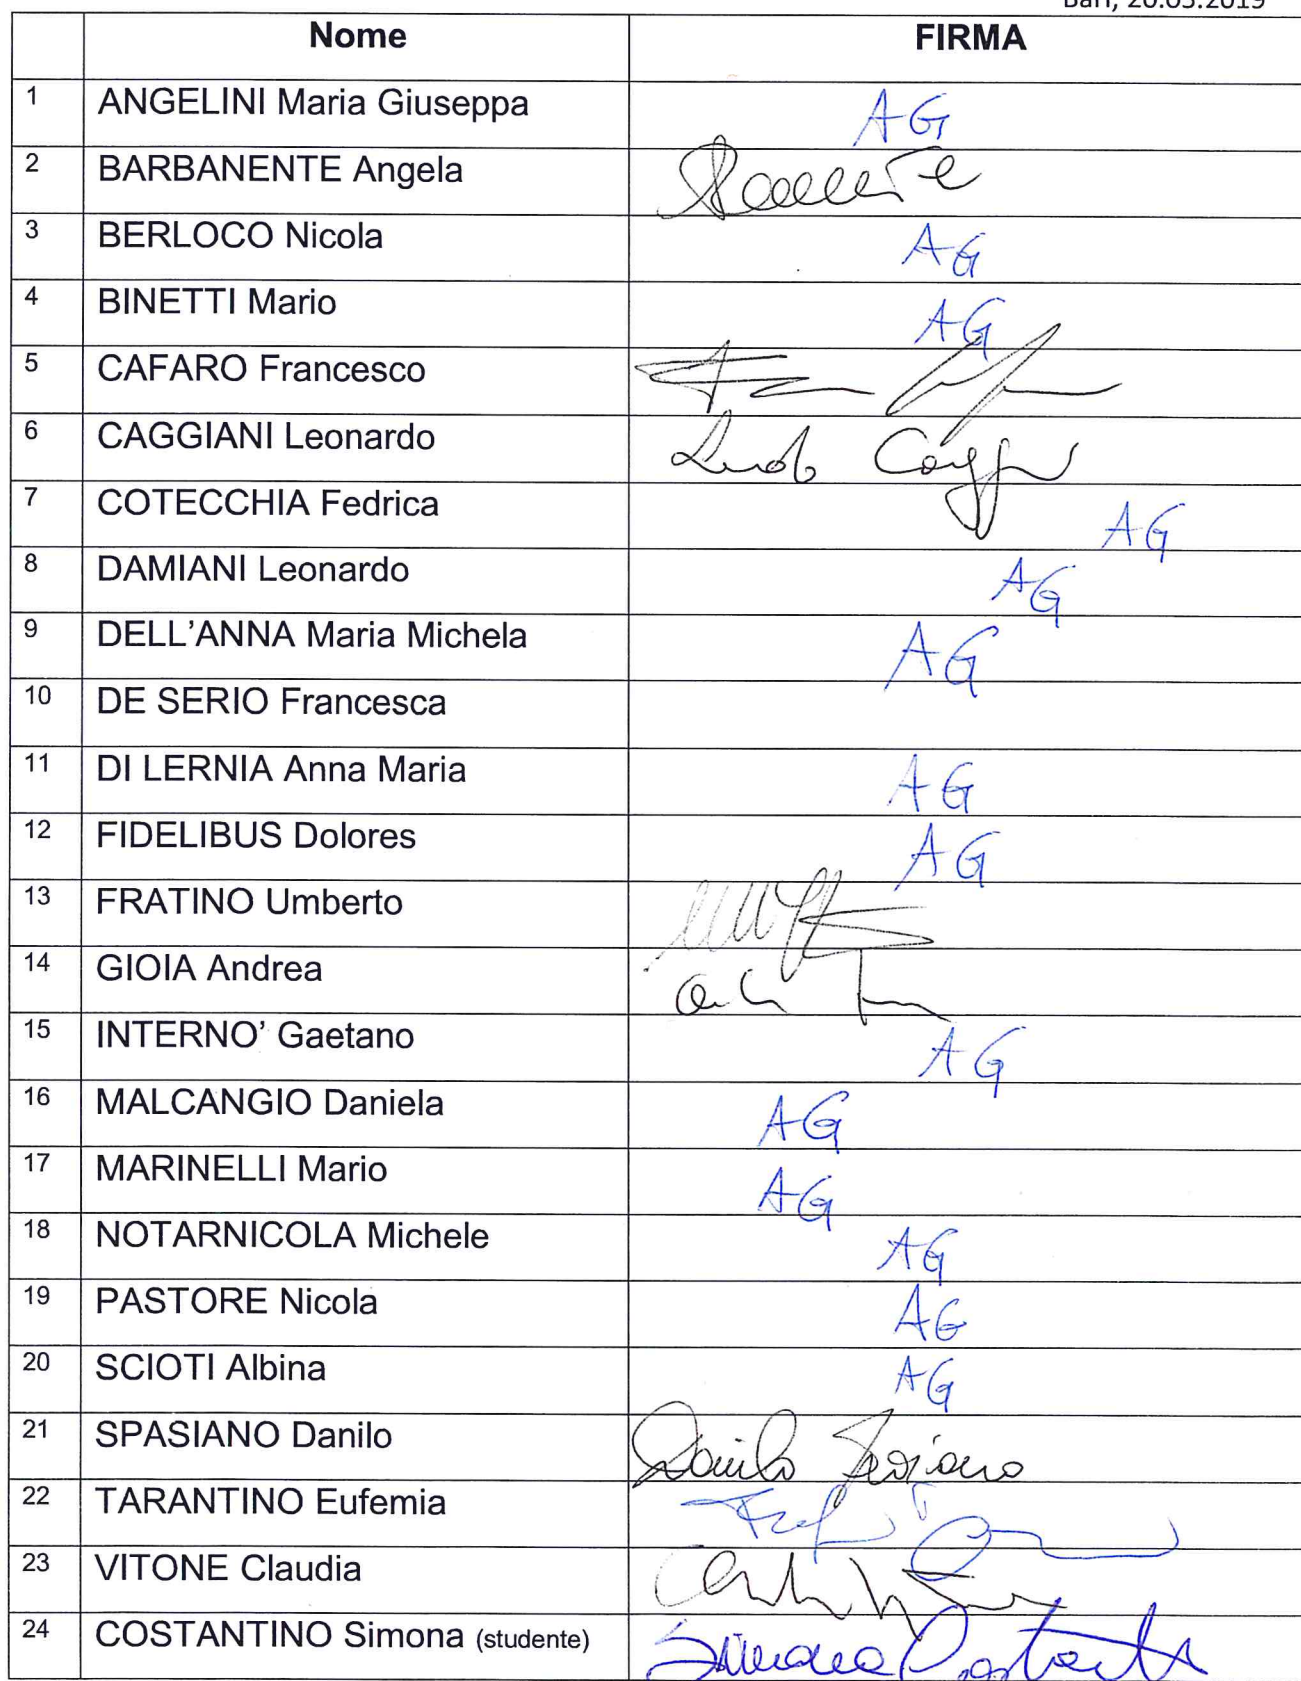 Bari, 20.05.2019
Nome FIRMA
1 ANGELINI Maria Giuseppa AG
2 BARBANENTE Angela
3 BERLOCO Nicola AG
4 BINETTI Mario AG
5 CAFARO Francesco
6 CAGGIANI Leonardo
7 COTECCHIA Fedrica AG
8 DAMIANI Leonardo AG
9 DELL'ANNA Maria Michela AG
10 DE SERIO Francesca
11 DI LERNIA Anna Maria AG
12 FIDELIBUS Dolores AG
13 FRATINO Umberto
14 GIOIA Andrea
15 INTERNO' Gaetano AG
16 MALCANGIO Daniela AG
17 MARINELLI Mario AG
18 NOTARNICOLA Michele AG
19 PASTORE Nicola AG
20 SCIOTI Albina AG
21 SPASIANO Danilo Danilo Spasiano
22 TARANTINO Eufemia
23 VITONE Claudia
24 COSTANTINO Simona (studente) Simona Costantino